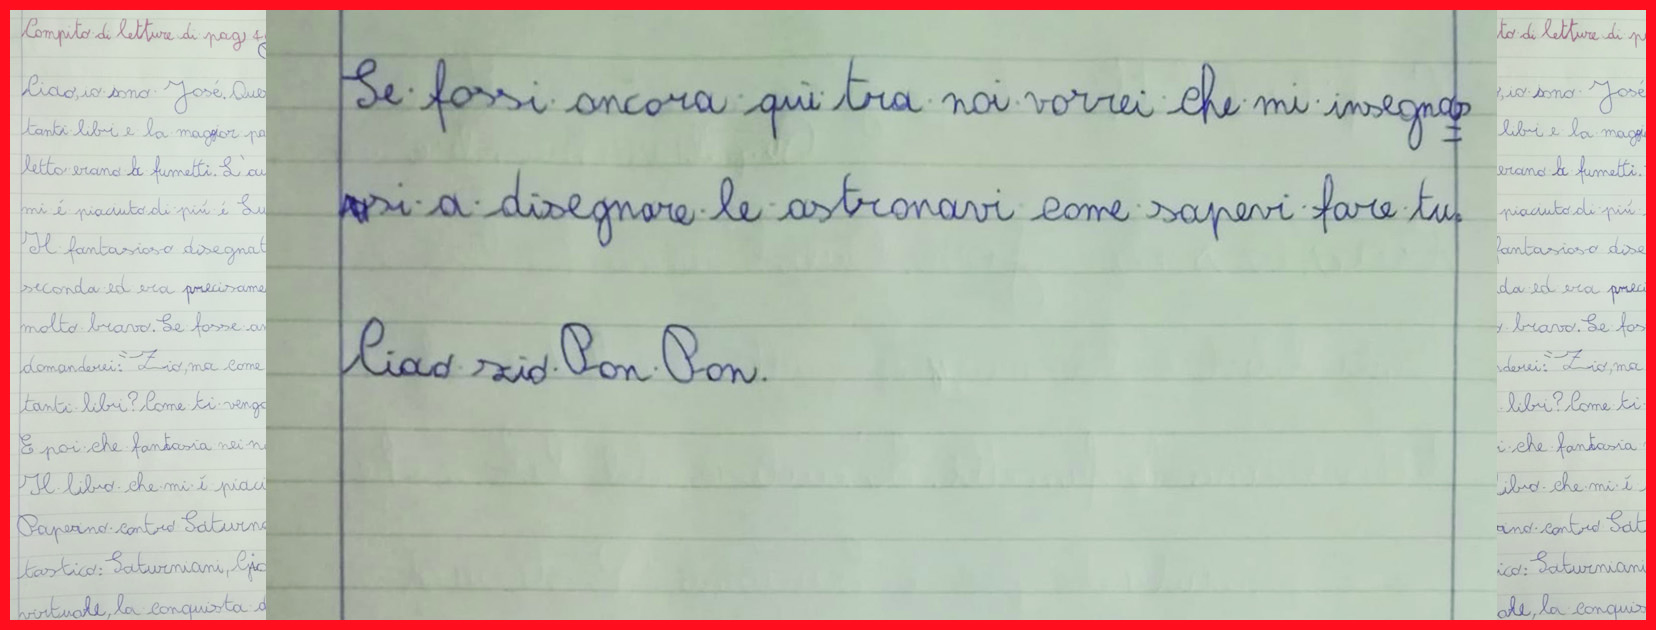 Compito di letture di pag 4
Ciao, io sono José. Que
tanti libri e la maggior pa
letto erano le fumetti. L'au
mi é piaciuto di piú é Lu
Il fantasioso disegnat
seconda ed era precisame
molto bravo. Se fosse an
domanderei: "Zio, ma come
tanti libri? Come ti vengo
E poi che fantasia nei n
Il libro che mi é piaciu
Paperino contro Saturno
tastico: Saturniani,
virtuale, la conquista d
Se fossi ancora qui tra noi vorrei che mi insegnas=
si a disegnare le astronavi come sapevi fare tu.
Ciao zio Pon Pon.
to di letture di p
, io sono José
libri e la magg
erano le fumetti.
piaciuto di piú
fantasioso dise
da ed era preci
bravo. Se fos
derei: "Zio, ma
libri? Come ti
i che fantasia
libro che mi é
ano contro Sat
ico: Saturniani
ale, la conquis